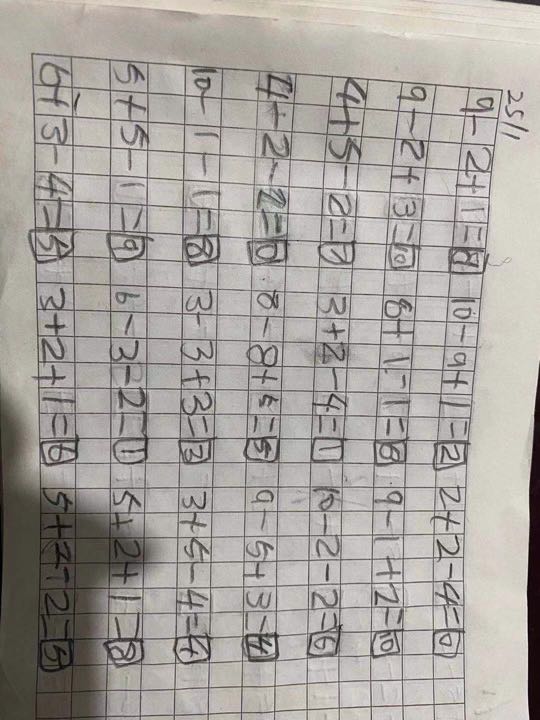 25/1
9-2+1=8 10-9+1=2 2+2-4=0
9-2+3=10 6+1-1=6 9-1+2=10
4+5-2=7 3+2-4=1 10-2-2=6
4+2-2=0 8-8+5=5 9-5+3=4
10-1-1=8 3-3+3=3 3+5-4=4
5+5-1=9 6-3-2=1 5+2+1=8
6+3-4=5 3+2+1=6 5+2-2=5